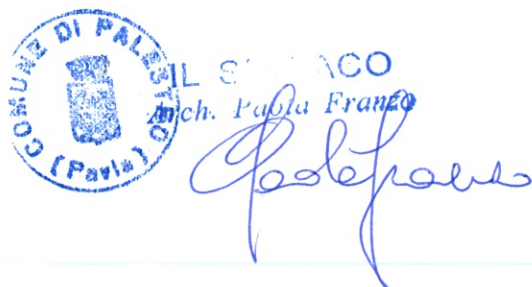 COMUNE DI PALESTRO
(Pavia)
IL SINDACO
Arch. Paola Franzo
Paola Franzo